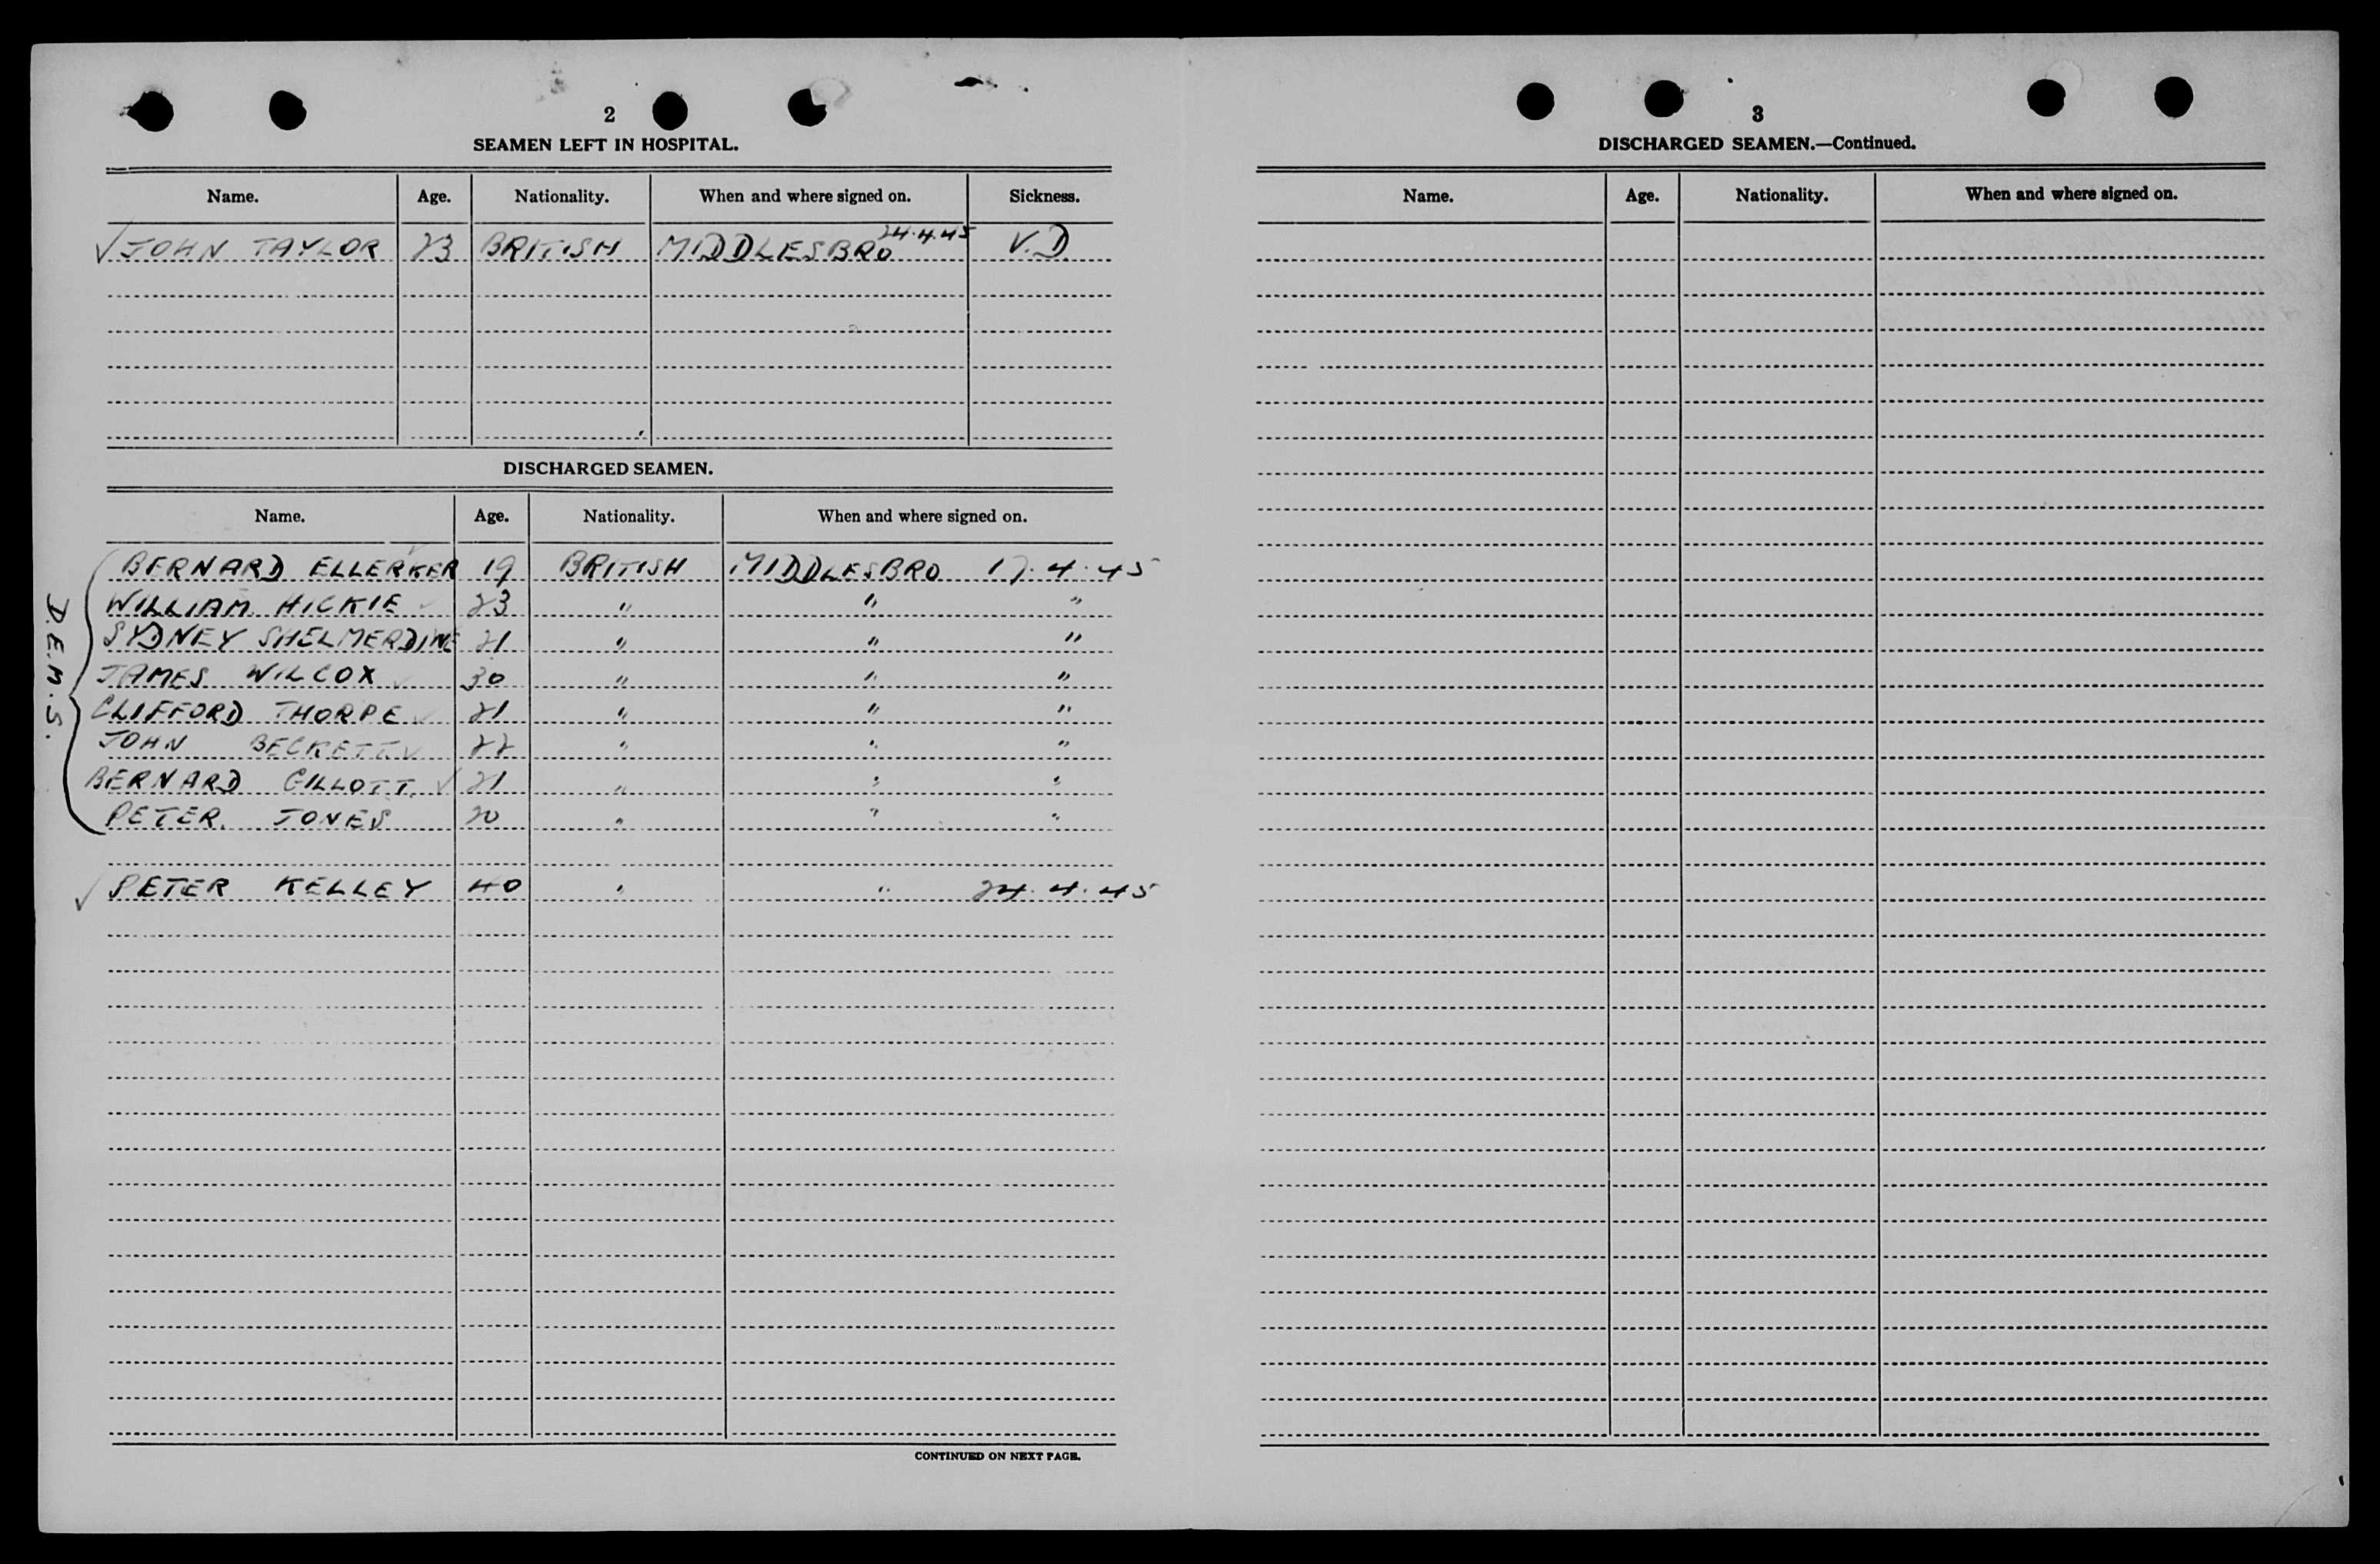 2
SEAMEN LEFT IN HOSPITAL.
Name. Age. Nationality. When and where signed on. Sickness.
JOHN TAYLOR 23 BRITISH MIDDLESBRO 24.4.45 V.D.
DISCHARGED SEAMEN.
Name. Age. Nationality. When and where signed on.
D.E.M.S.
BERNARD ELLERKER 19 BRITISH MIDDLESBRO 17.4.45
WILLIAM HICKIE 23 " " "
SYDNEY SHELMERDINE 21 " " "
JAMES WILCOX 30 " " "
CLIFFORD THORPE 21 " " "
JOHN BECKETT 22 " " "
BERNARD GILLOTT. 21 " " "
PETER. JONES 20 " " "
PETER KELLEY 40 " " 24.4.45
CONTINUED ON NEXT PAGE.
3
DISCHARGED SEAMEN.—Continued.
Name. Age. Nationality. When and where signed on.